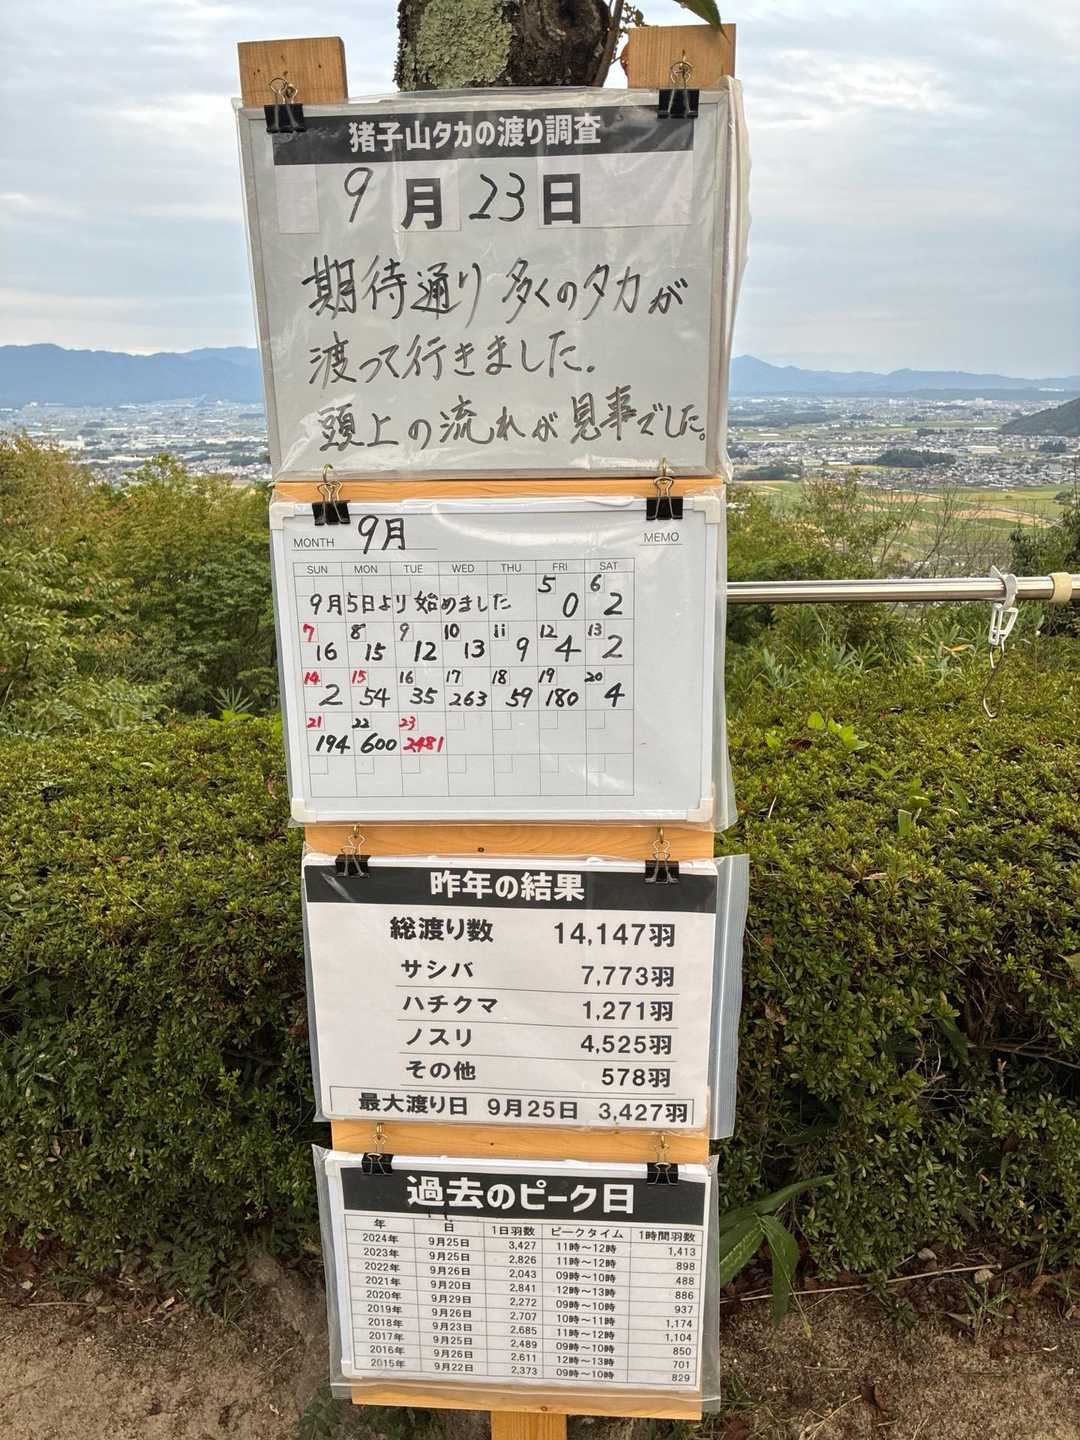 猪子山タカの渡り調査
9月23日
期待通り多くのタカが
渡って行きました。
頭上の流れが見事でした。
MONTH 9月 MEMO
SUN MON TUE WED THU FRI SAT
9月5日より始めました 5 6
0 2
7 8 9 10 11 12 13
16 15 12 13 9 4 2
14 15 16 17 18 19 20
2 54 35 263 59 180 4
21 22 23
194 600 2481
昨年の結果
総渡り数 14,147羽
サシバ 7,773羽
ハチクマ 1,271羽
ノスリ 4,525羽
その他 578羽
最大渡り日 9月25日 3,427羽
過去のピーク日
年 日 1日羽数 ピークタイム 1時間羽数
2024年 9月25日 3,427 11時～12時 1,413
2023年 9月25日 2,826 11時～12時 898
2022年 9月26日 2,043 09時～10時 488
2021年 9月20日 2,841 12時～13時 886
2020年 9月29日 2,272 09時～10時 937
2019年 9月26日 2,707 10時～11時 1,174
2018年 9月23日 2,685 11時～12時 1,104
2017年 9月25日 2,489 09時～10時 850
2016年 9月26日 2,611 12時～13時 701
2015年 9月22日 2,373 09時～10時 829